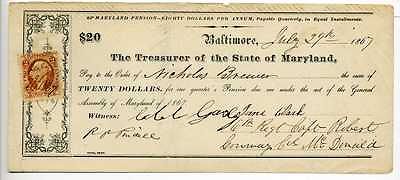 OF MARYLAND PENSION—EIGHTY DOLLARS PER ANNUM, Payable Quarterly, in Equal Instalments.
$20 Baltimore, July 29th 1867
The Treasurer of the State of Maryland,
Pay to the Order of Nicholas Brewer the sum of
TWENTY DOLLARS, for one quarter's Pension due me under the act of the General
Assembly of Maryland of 1867. Jane Wark
Witness:
6th Regt Capt Robert
McDonald